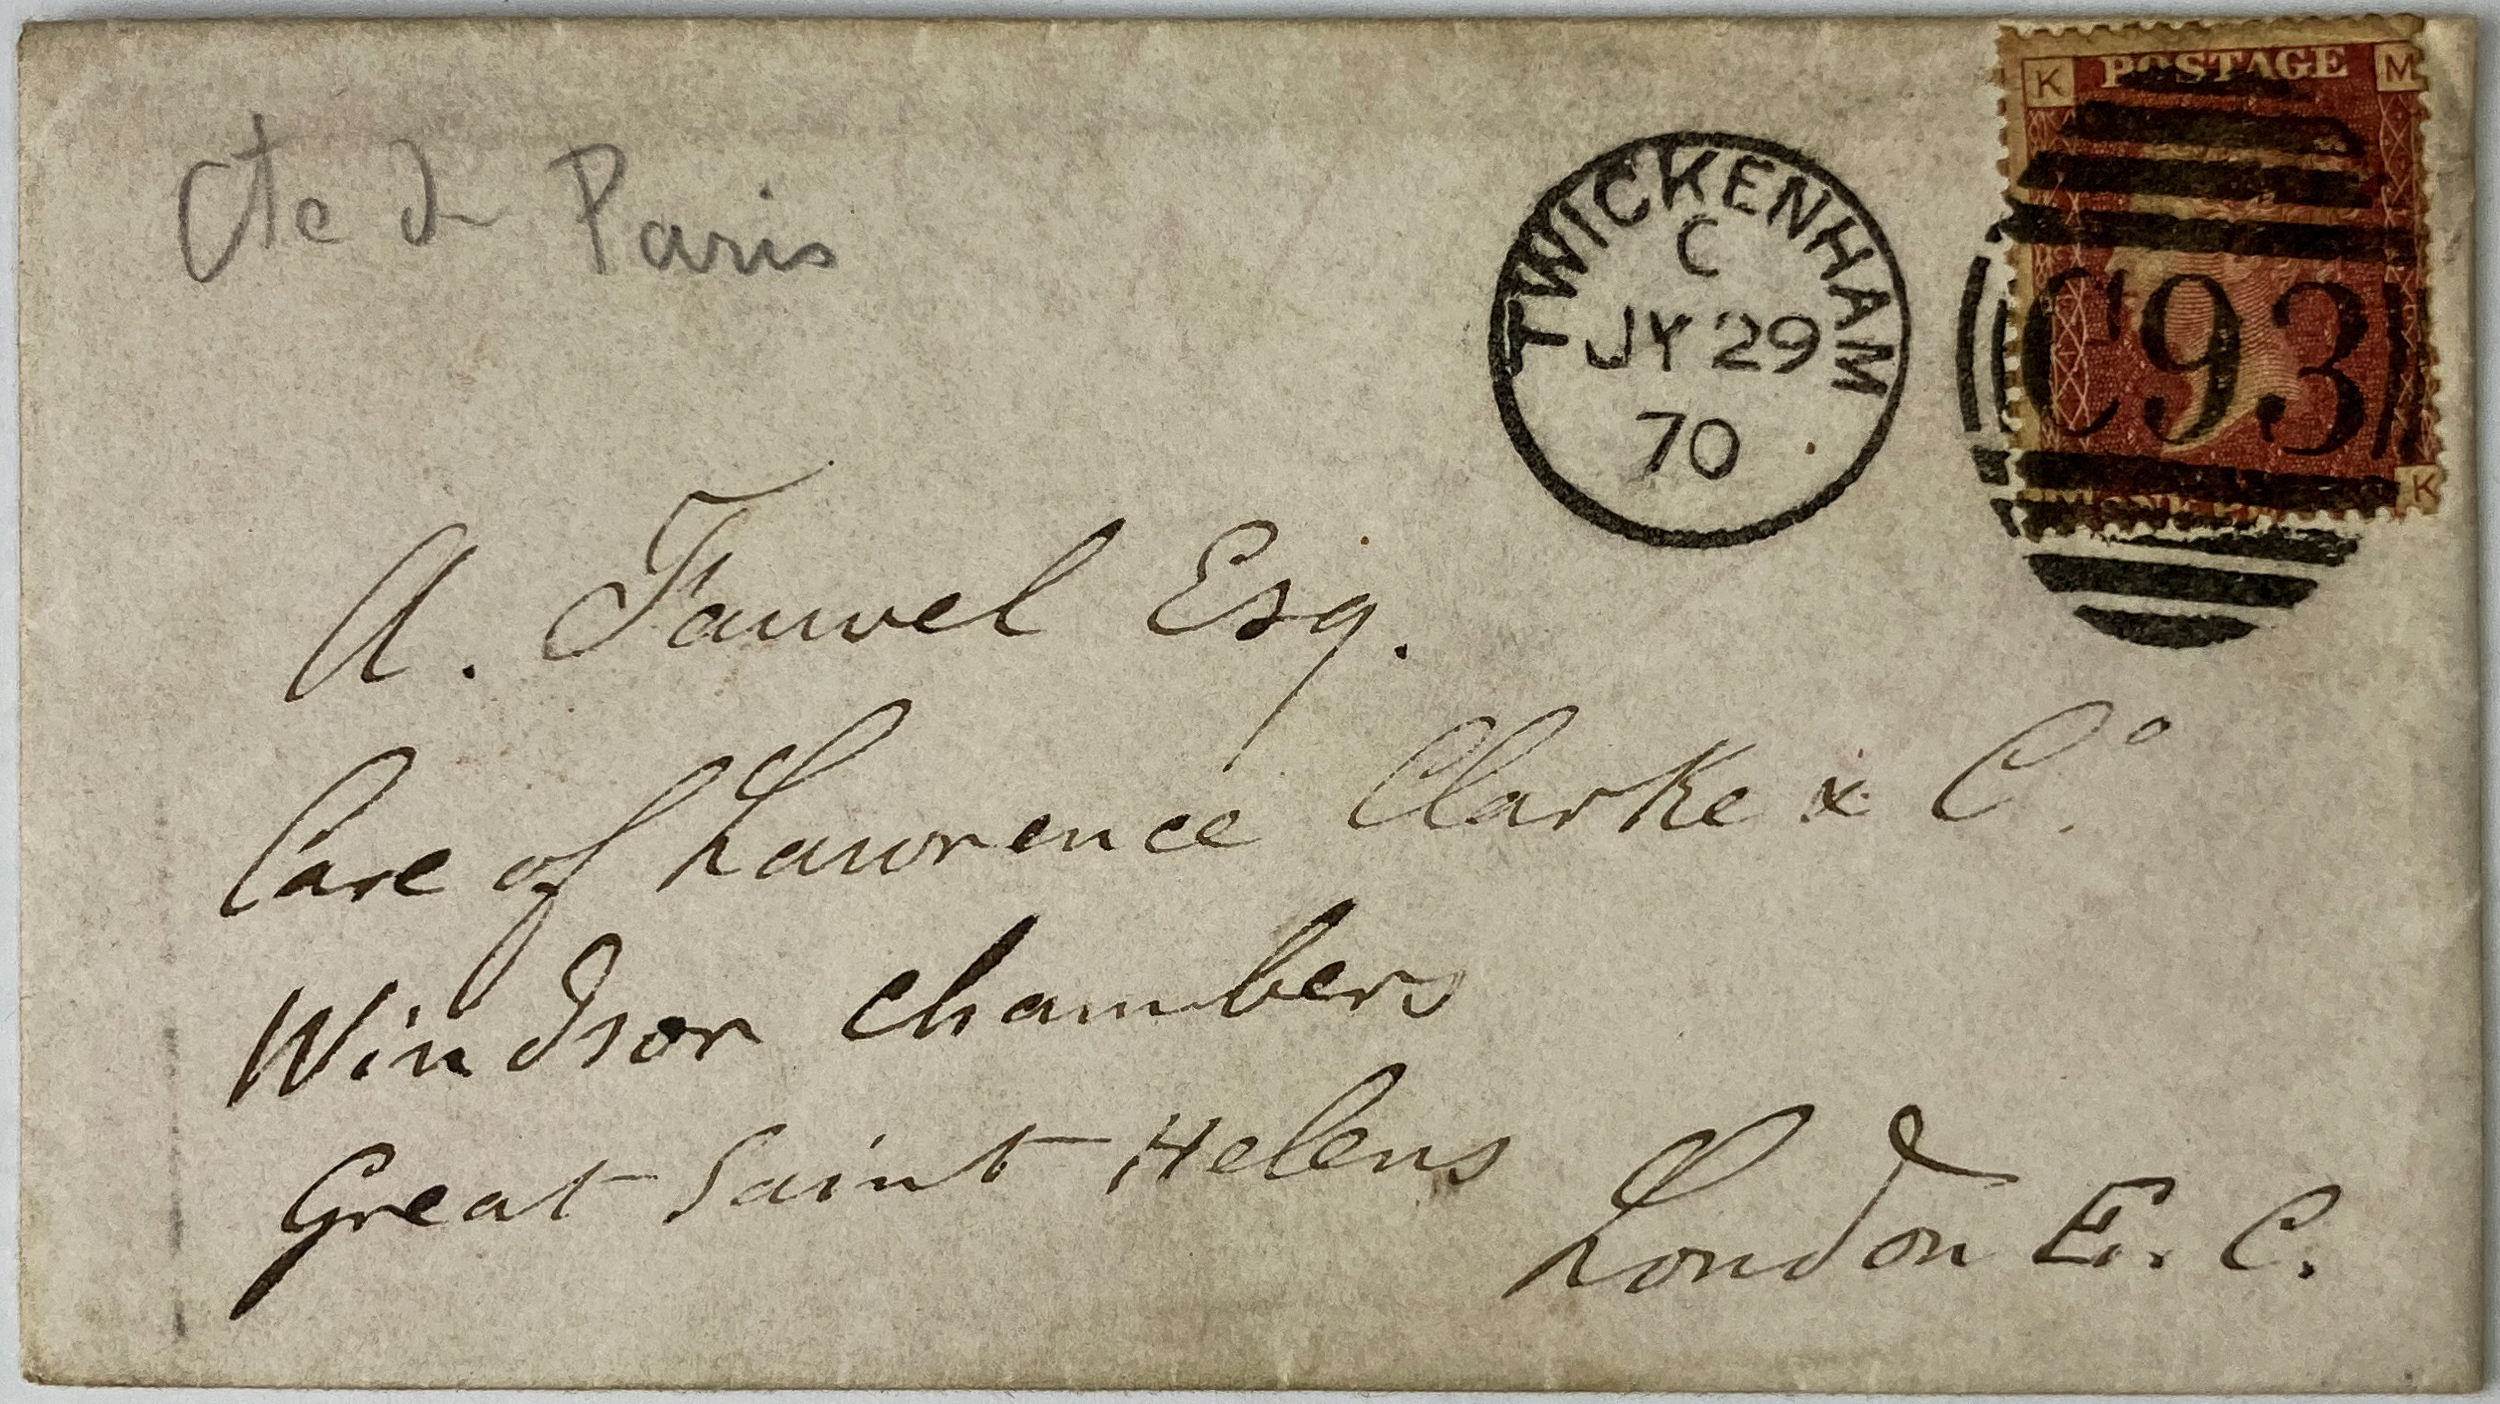 Cte de Paris
TWICKENHAM
C
JY 29
70
K POSTAGE M
C93
K
A. Fauvel Esq.
Care of Lawrence Clarke & Co.
Windsor Chambers
Great Saint Helens
London E. C.